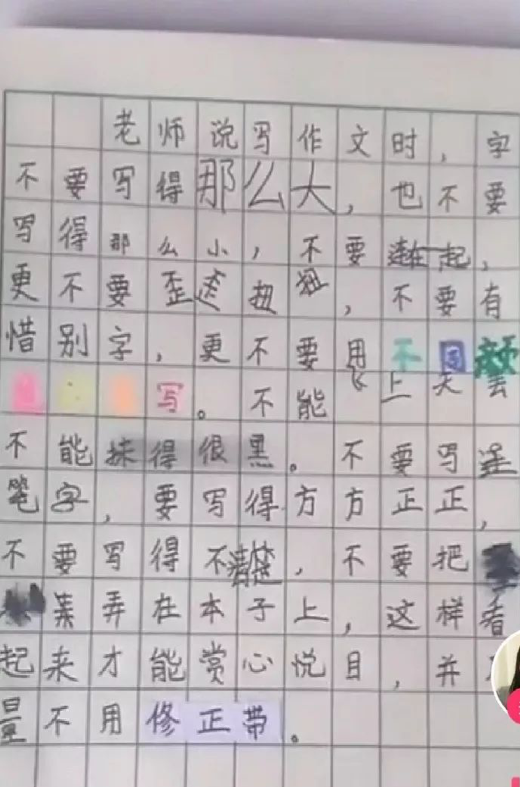 老师说写作文时，字
不要写得那么大，也不要
写得那么小，不要连在一起，
更不要歪歪扭扭，不要有
惜别字，更不要用不同颜
写。不能飞上天去
不能抹得很黑。不要写连
笔字，要写得方方正正，
不要写得不清楚，不要把
弄在本子上，这样看
起来才能赏心悦目，并
量不用修正带。